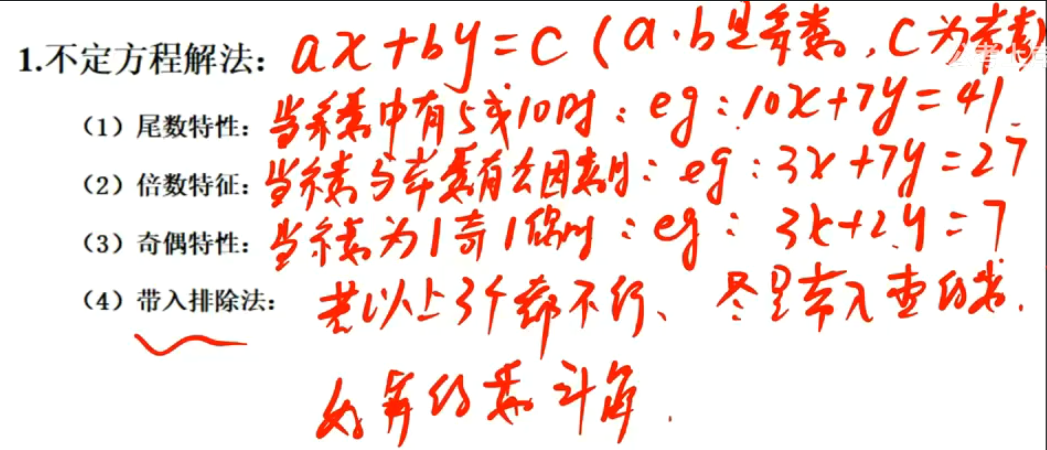 1.不定方程解法：ax+by=c（a.b是系数，c为常数）
（1）尾数特性：当系数中有5或10时：eg：10x+7y=41
（2）倍数特征：当系数与常数有公因数时：eg：3x+7y=27
（3）奇偶特性：当系数为1奇1偶时：eg：3x+2y=7
（4）带入排除法：若以上3个都不行、尽量带入
好算的数计算.